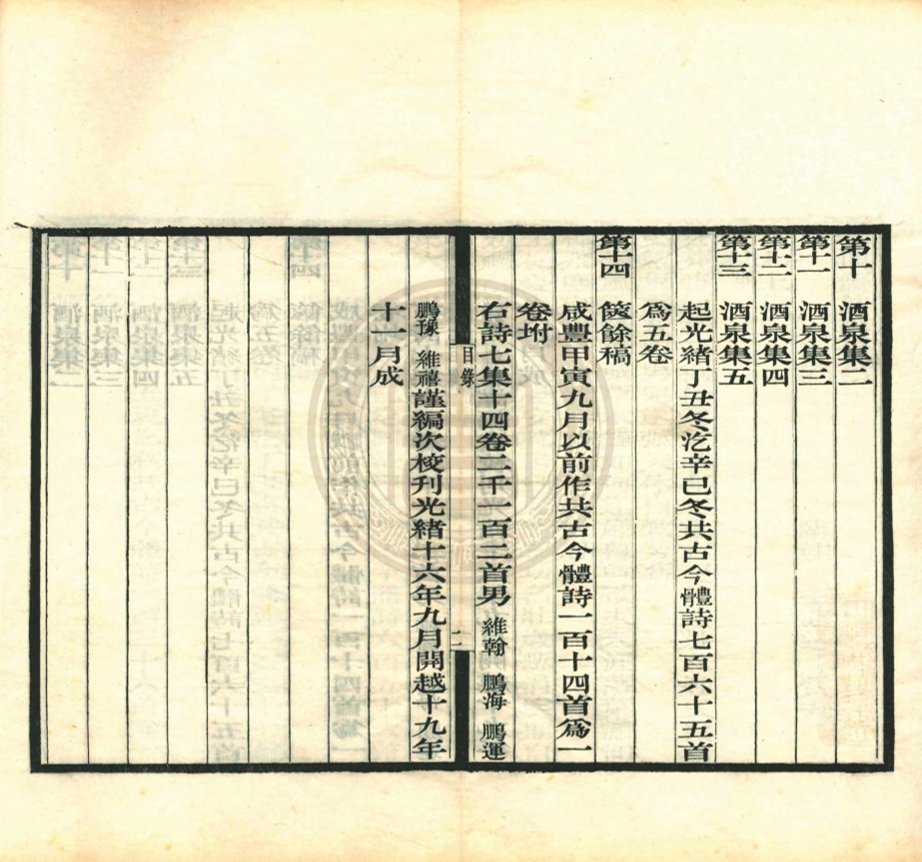 第十 酒泉集二
第十一 酒泉集三
第十二 酒泉集四
第十三 酒泉集五
起光緒丁丑冬汔辛巳冬共古今體詩七百六十五首
爲五卷
第十四 篋餘稿
咸豐甲寅九月以前作共古今體詩一百十四首爲一
卷坿
右詩七集十四卷二千一百二首男 維翰 鵬海 鵬運
目錄 二
鵬豫 維禧謹編次校刊光緒十六年九月開越十九年
十一月成